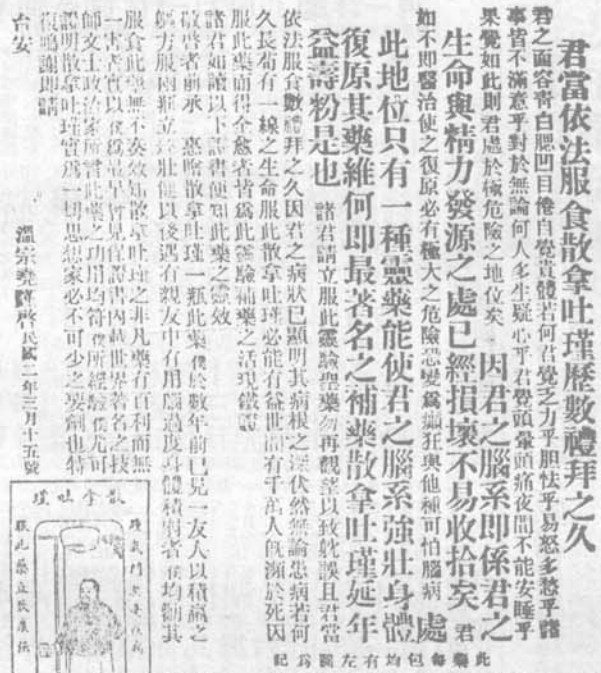 君當依法服食散拿吐瑾歷數禮拜之久
君之面容青白腮凹目倦自覺貴體若何君覺乏力乎胆怯乎易怒多愁乎諸
事皆不滿意乎對於無論何人多生疑心乎君覺頭暈頭痛夜間不能安睡乎
果覺如此則君處於極危險之地位矣 因君之腦系即係君之
生命與精力發源之處已經損壞不易收拾矣 君
如不即醫治使之復原必有極大之危險恐變為癲狂與他種可怕腦病 處
此地位只有一種靈藥能使君之腦系強壯身體
復原其藥維何即最著名之補藥散拿吐瑾延年
益壽粉是也 諸君請立服此靈驗聖藥勿再觀望以致躭誤且君當
依法服食數禮拜之久因君之病狀已顯明其病根之深伏然無論患病若何
久長苟有一線之生命服此散拿吐瑾必能有益世間有千萬人旣瀕於死因
服此藥而得全愈者皆為此靈驗補藥之活現鐵證
諸君如讀以下證書便知此藥之靈效
敬啓者前承 惠贈散拿吐瑾一瓶此藥僕於數年前已見一友人以積羸之
軀方服兩瓶立即壯健以後遇有親友中有用腦過度身體積弱者僕均勸其
服食此藥無不奏效知散拿吐瑾之非凡藥有百利而無
一害者實以僕為最早曾見保證書內載世界著名之技
師文士政治家所書此藥之功用均符僕所經驗僕尤可
證明散拿吐瑾實為一切思想家必不可少之要劑也特
復鳴謝即請
台安
溫宗堯謹啓民國二年三月十五號
此藥每包均有左圖為記
散拿吐瑾
服此藥立散廣